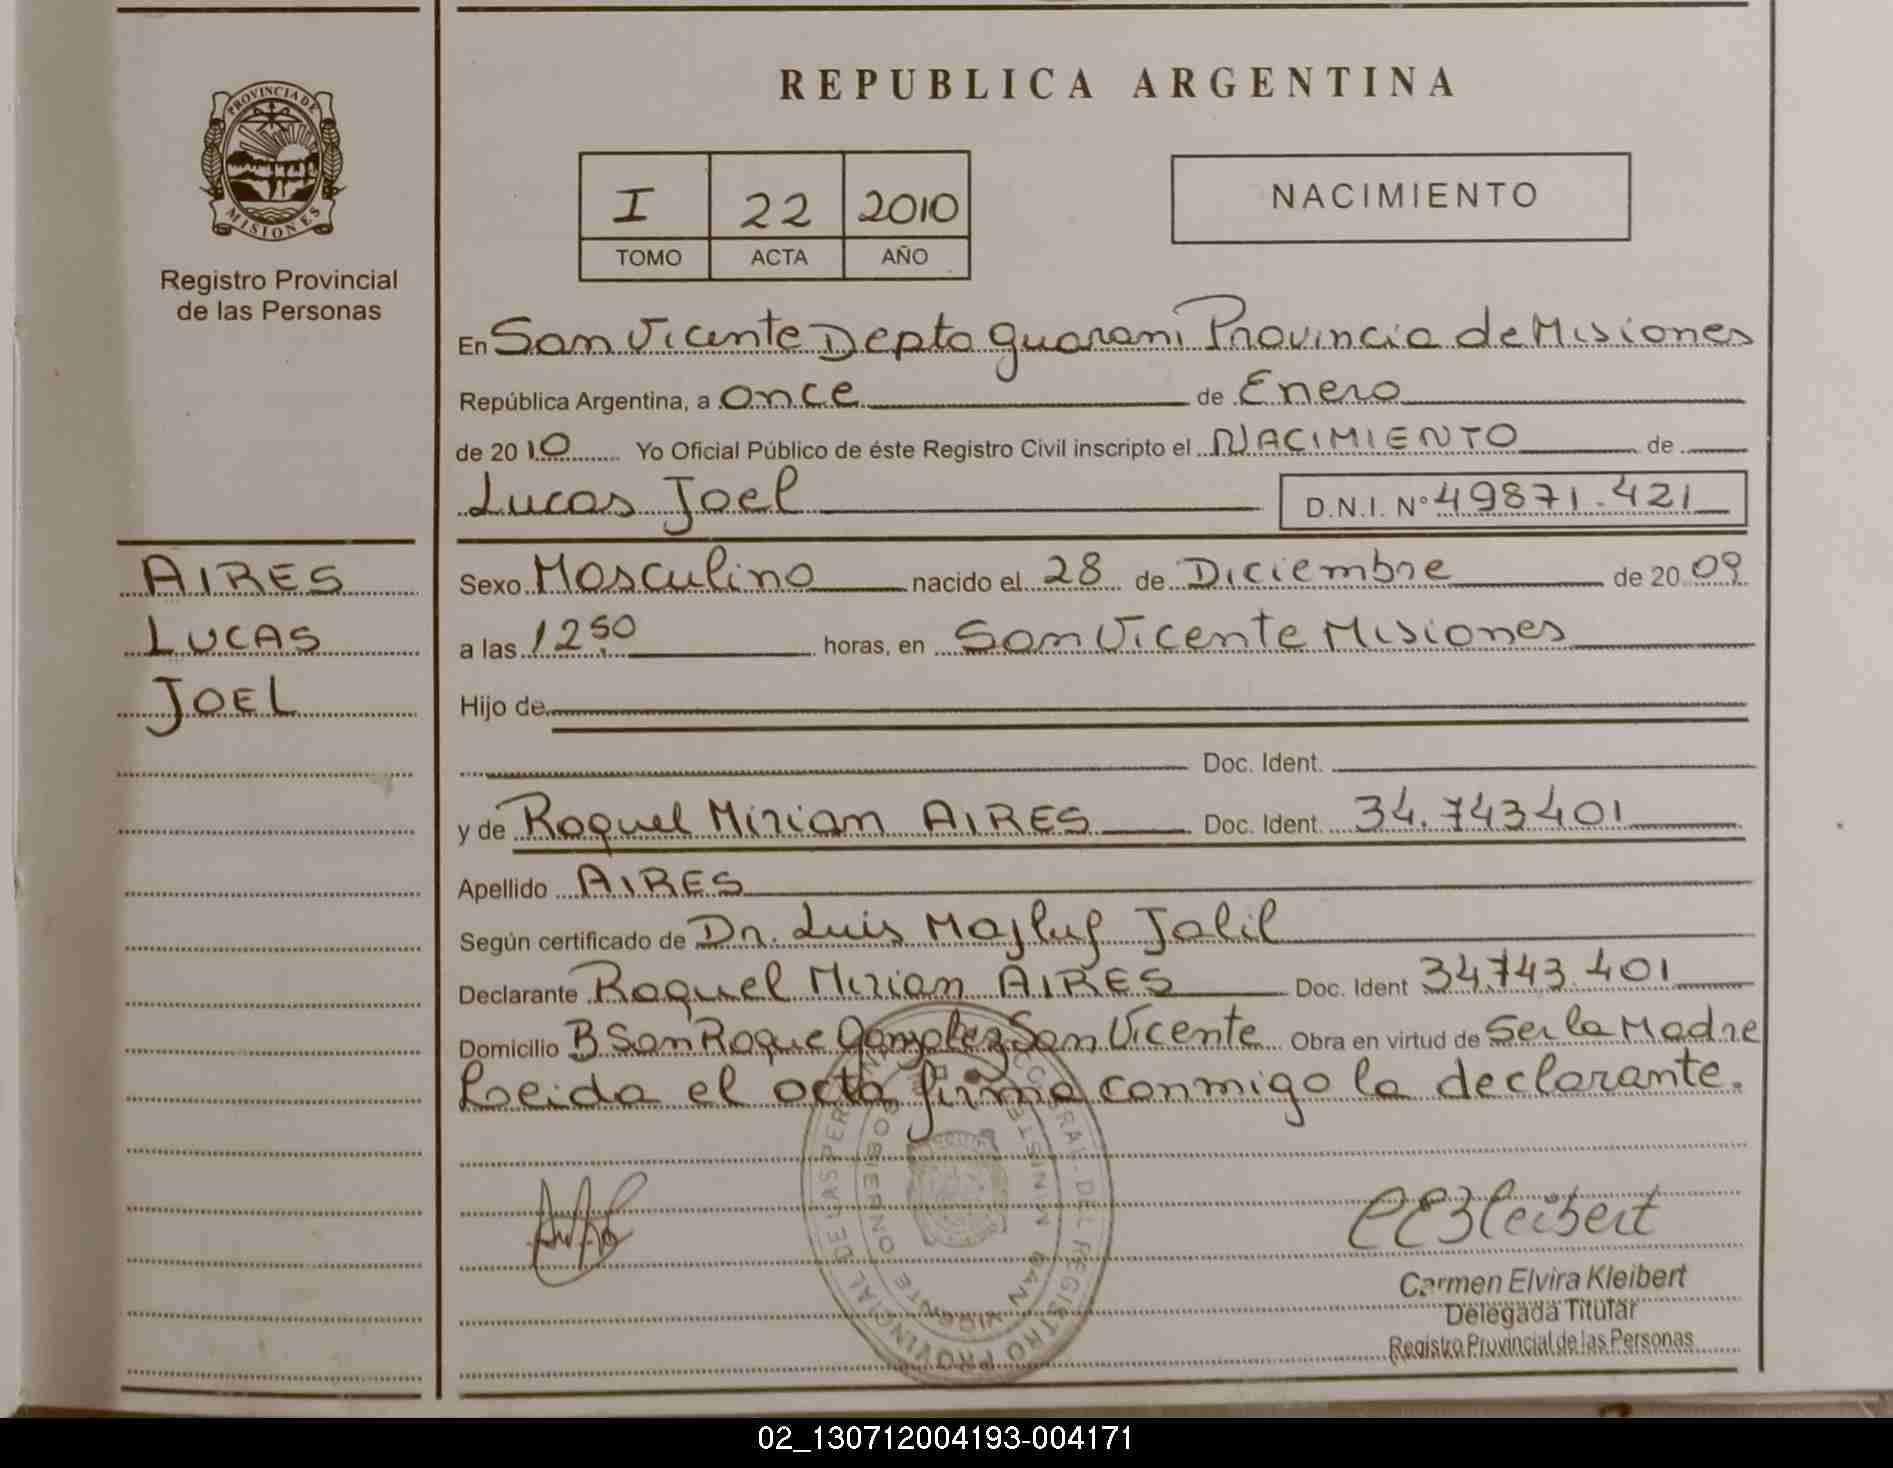 PROVINCIA DE
MISIONES
Registro Provincial
de las Personas
AIRES
LUCAS
JOEL
REPUBLICA ARGENTINA
I 22 2010
TOMO ACTA AÑO
NACIMIENTO
En San Vicente Depto guarani Provincia de Misiones
República Argentina, a once de Enero
de 2010 Yo Oficial Público de éste Registro Civil inscripto el NACIMIENTO de
Lucas Joel D.N.I. Nº 49871.421
Sexo Masculino nacido el 28 de Diciembre de 2009
a las 12.50 horas, en San Vicente Misiones
Hijo de
Doc. Ident.
y de Raquel Mirian AIRES Doc. Ident. 34.743401
Apellido AIRES
Según certificado de Dr. Luis Majluf Jalil
Declarante Raquel Mirian AIRES Doc. Ident 34.743.401
Domicilio B San Roque Gonzalez San Vicente Obra en virtud de Ser la Madre
Leida el acta firma conmigo la declarante.
CEKleibert
Carmen Elvira Kleibert
Delegada Titular
Registro Provincial de las Personas
REGISTRO PROVINCIAL DE LAS PER
MINISTE GOBIERNO
SAN VICENTE
02_130712004193-004171